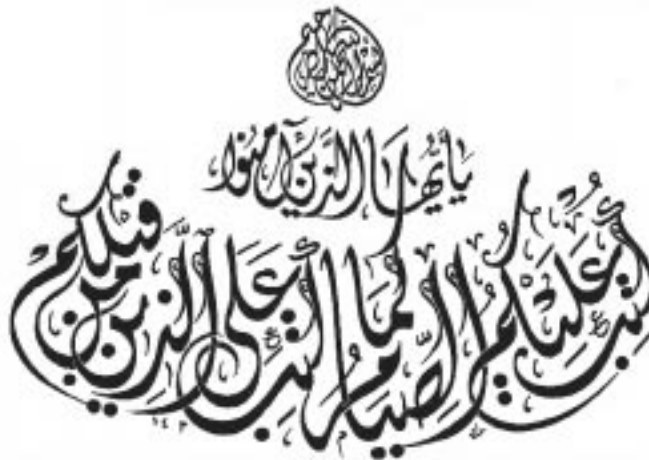 بسم الله الرحمن الرحيم
يا أيها الذين آمنوا
كتب عليكم الصيام كما كتب على الذين من قبلكم